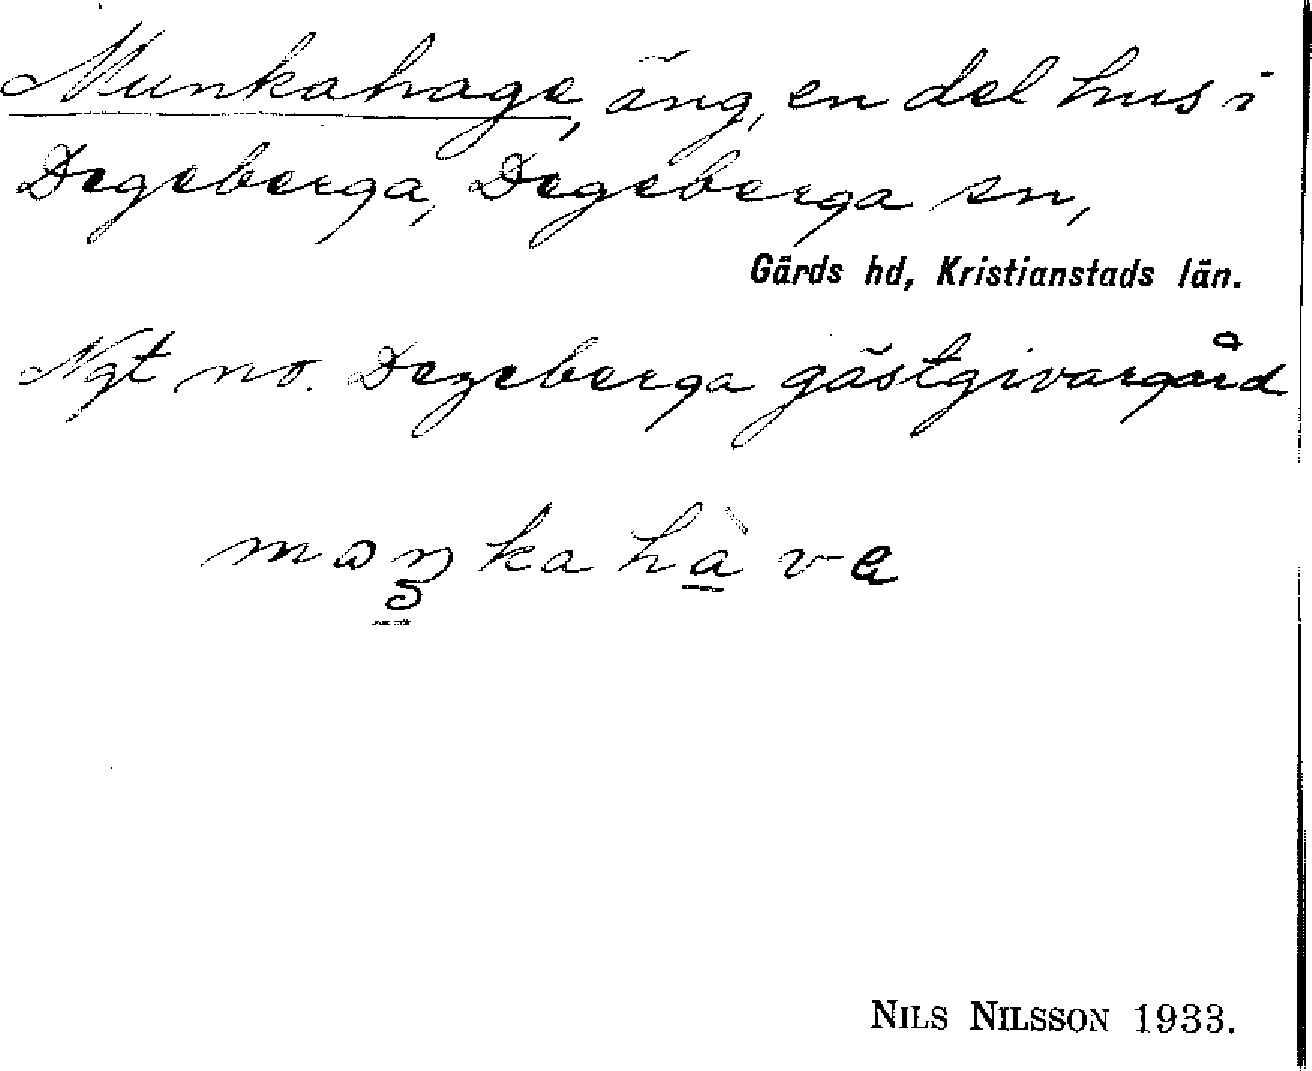 Munkahage, äng, en del hus i
Degeberga, Degeberga sn,
Gärds hd, Kristianstads län.
Ngt no. Degeberga gästgivargård
NILS NILSSON 1933.